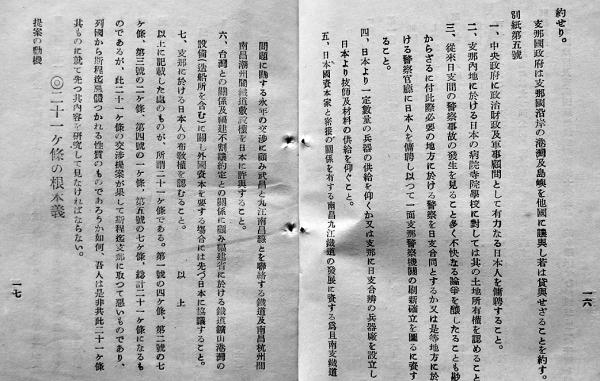 約せり。
支那國政府は支那國沿岸の港灣及島嶼を他國に讓與し若は貸與せざることを約す。
別紙第五號
一、中央政府に政治財政及軍事顧問として有力なる日本人を傭聘すること。
二、支那內地に於ける日本の病院寺院學校に對しては其の土地所有權を認めること
三、從來日支間の警察事故の發生を見ること多く不快なる論爭を釀したることも尠
からざるに付此際必要の地方に於ける警察を日支合同とするか又は是等地方に於
ける警察官廳に日本人を傭聘し以つて一面支那警察機關の刷新確立を圖るに資す
ること。
四、日本より一定數量の兵器の供給を仰くか又は支那に日支合辨の兵器廠を設立し
日本より技師及材料の供給を仰くこと。
五、日本國資本家と密接の關係を有する南昌九江鐵道の發展に資する爲且南支鐵道
一六
問題に關する永年の交涉に顧み武昌と九江南昌線とを聯絡する鐵道及南昌杭州間
南昌潮州間鐵道敷設權を日本に許與すること。
六、台灣との關係及福建不割讓約定との關係に顧み福建省に於ける鐵道鑛山港灣の
設備(造船所を含む)に關し外國資本を要する場合には先づ日本に協議すること。
七、支那に於ける日本人の布敎權を認むること。
以上
以上に記載した處のものが、所謂二十一ケ條である。第一號の四ケ條、第二號の七
ケ條、第三號の二ケ條、第四號の一ケ條、第五號の七ケ條、總計二十一ケ條になるも
のであるが、此二十一ケ條の交涉提案が果して斯程迄支那に取つて惡いものであり、
列國から斯程迄異議つかれる性質のものであらうか如何、吾人は是非共此二十一ケ條
其ものに就て先つ其內容を硏究して見なければならない。
◎二十一ケ條の根本義
提案の動機
一七